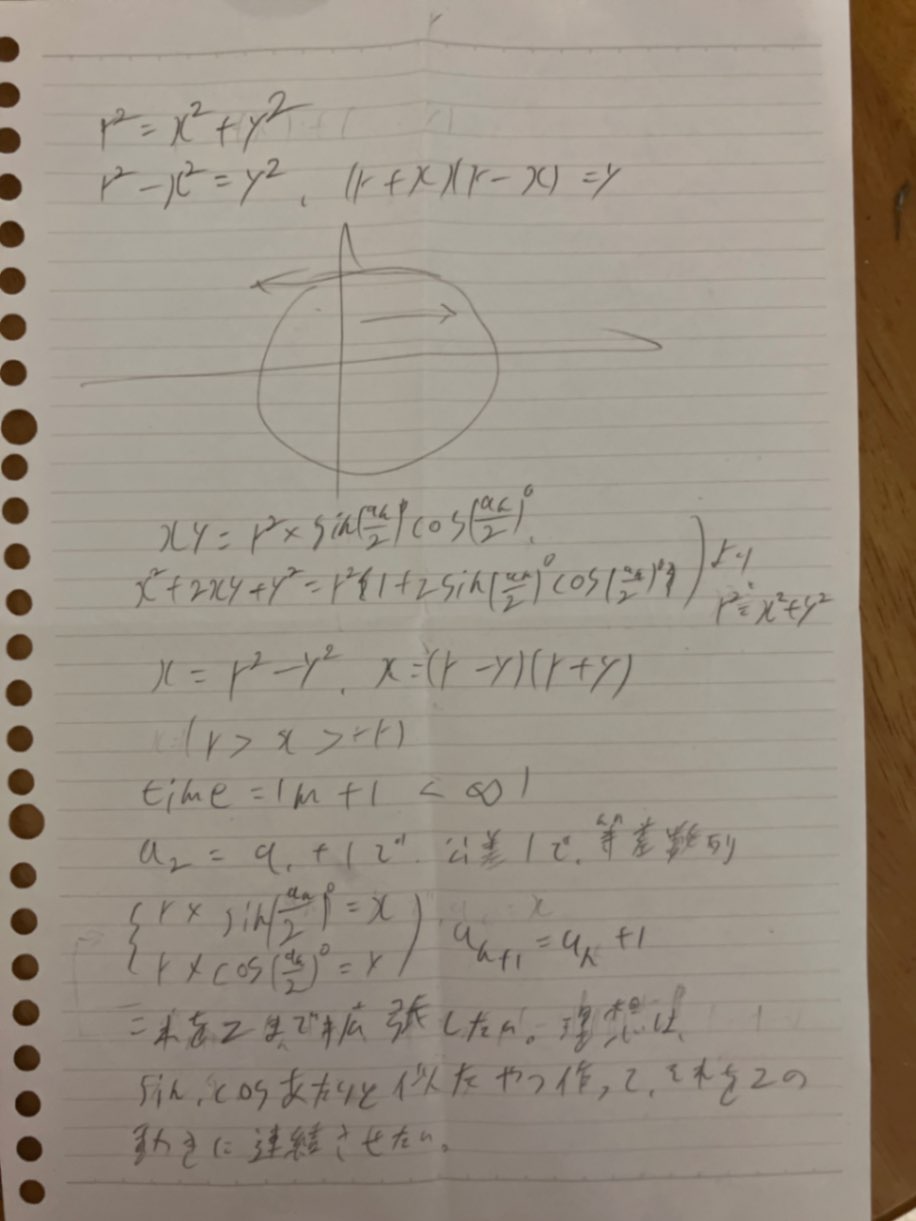 r² = x² + y²
r² - x² = y², (r + x)(r - x) = y
xy = r² × sin(aₙ/2)° cos(aₙ/2)°.
x² + 2xy + y² = r²{1 + 2sin(aₙ/2)° cos(aₙ/2)°} より
r² = x² + y²
x = r² - y². x = (r - y)(r + y)
(r > x > -r)
time = 1n + 1 < ∞
a₂ = a₁ + 1で. 公差1で. 等差数列
r × sin(aₙ/2)° = x
r × cos(aₙ/2)° = Y aₙ₊₁ = aₙ + 1
これをZまで拡張したい。理想は、
sin, cosあたりと似たやつ作って、それをZの
動きに連結させたい。